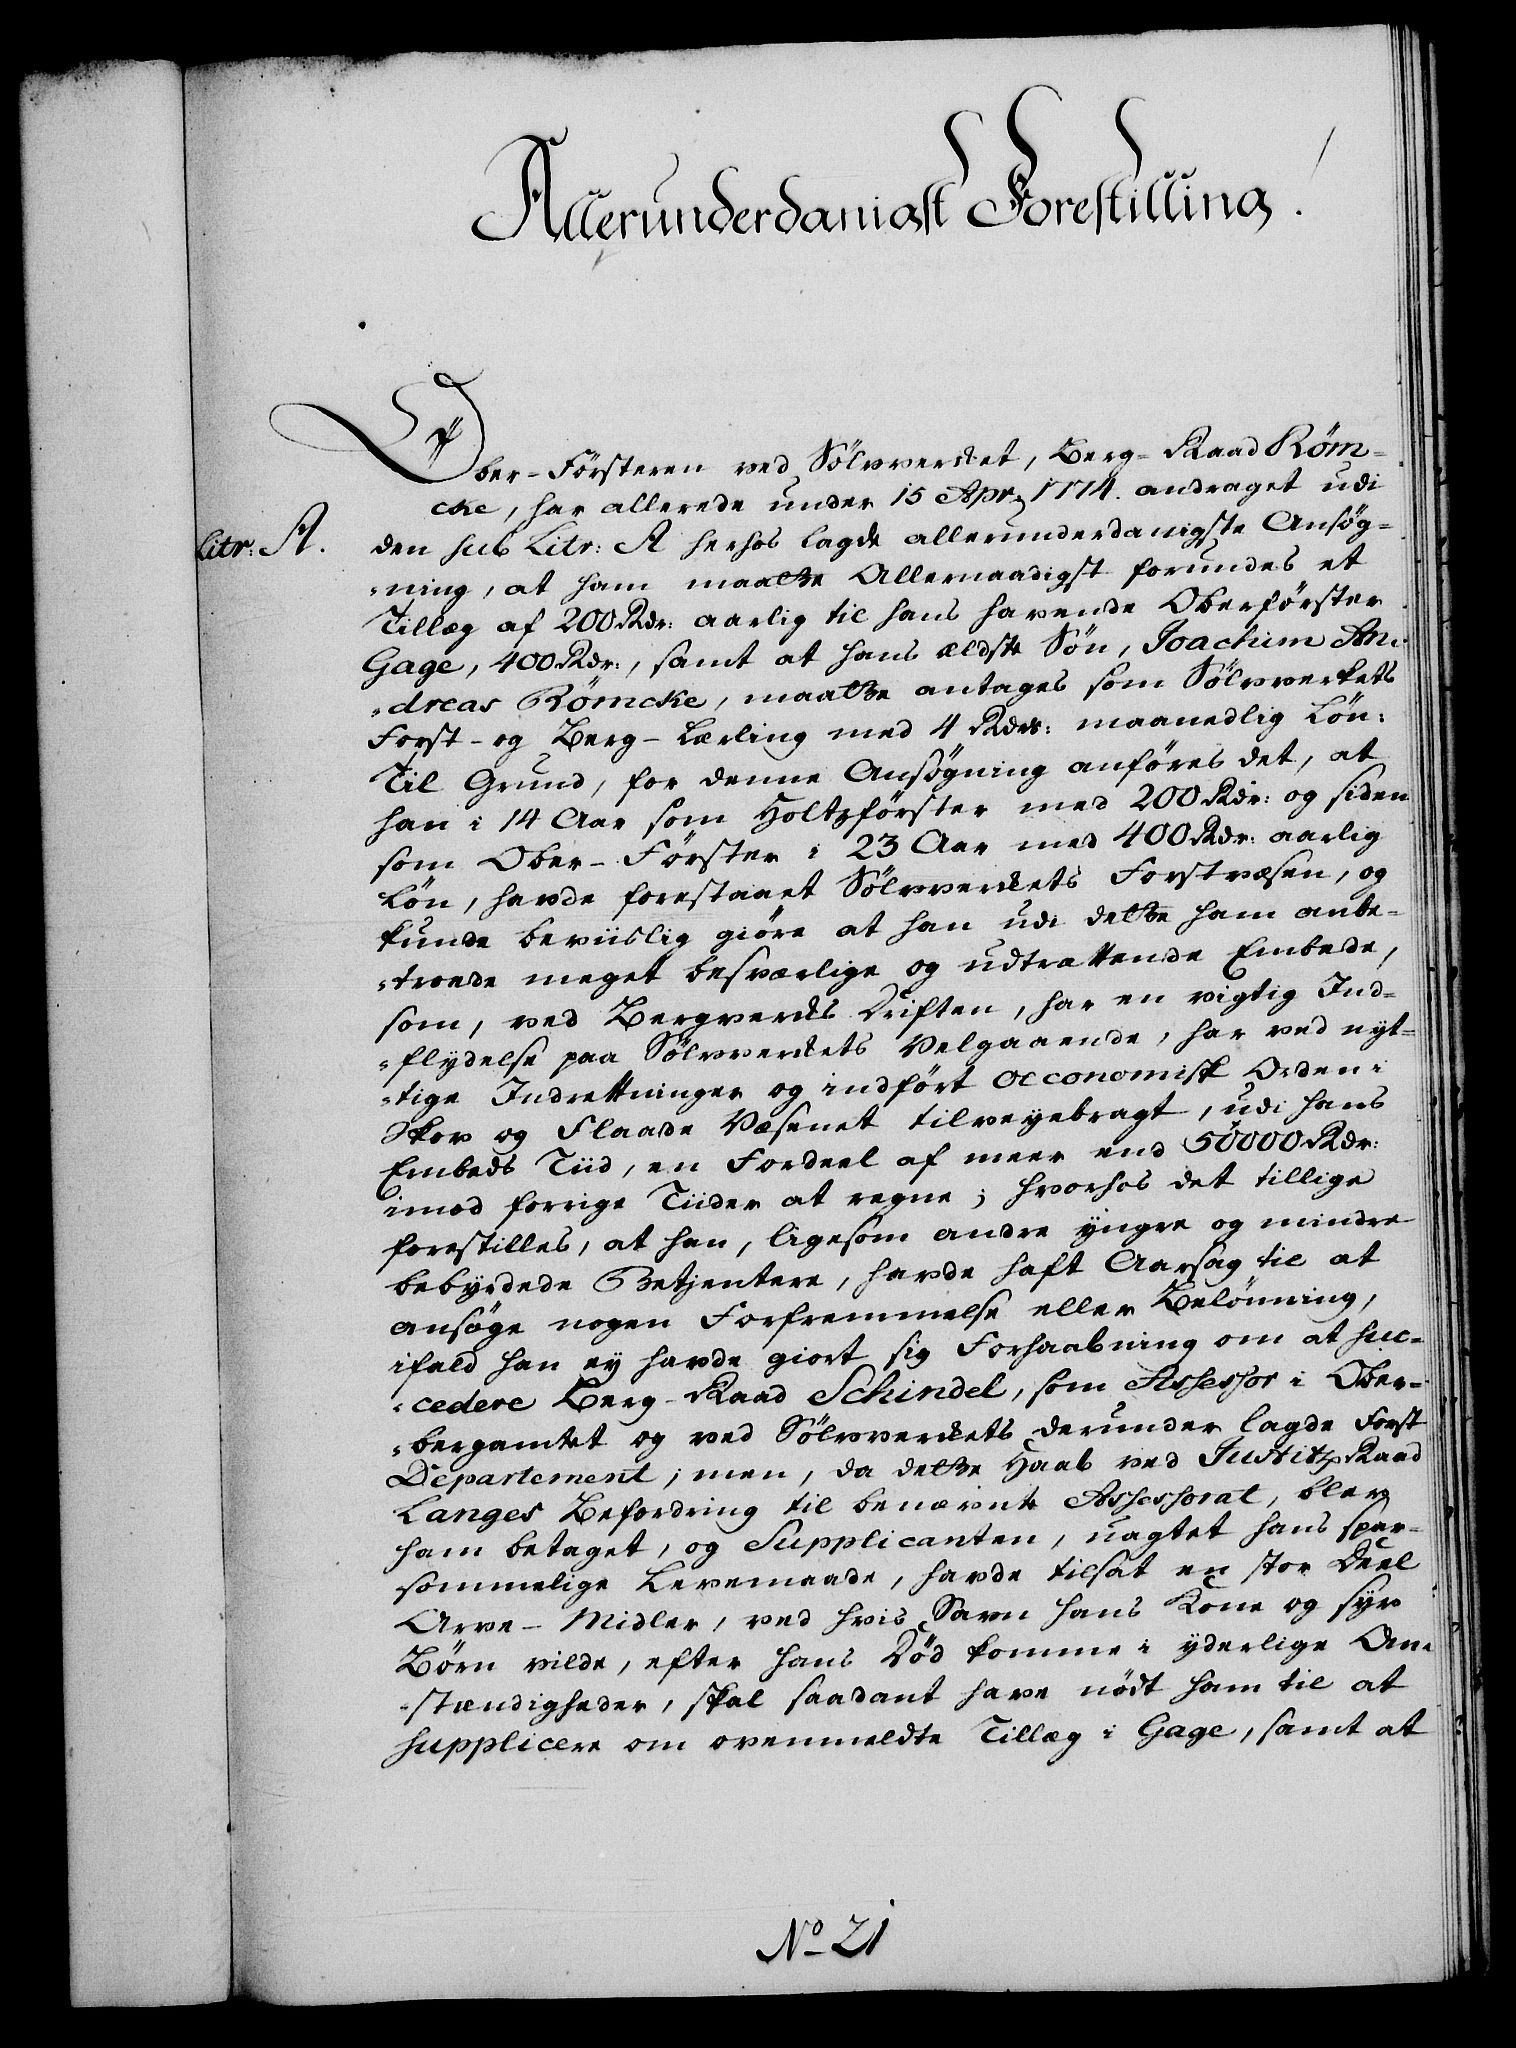 Allerunderdanigst Forestilling.
Ober-Försteren ved Sölvverket, Berg-Raad Röm-
cke, har allerede under 15 Apr. 1774. andraget udi
Litr: A. den sub Litr: A herhos lagde allerunderdanigste Ansøg-
ning, at ham maatte Allernaadigst forundes et
Tillæg af 200 Rdr: aarlig til hans havende Oberförster
Gage, 400 Rdr:, samt at hans ældste Sön, Joachim An-
dreas Römcke, maatte antages som Sölvverkets
Forst- og Berg-Lærling med 4 Rdr: maanedlig Lön:
Til Grund, for denne Ansögning anföres det, at
han i 14 Aar som Holtzförster med 200 Rdr: og siden
som Ober-Förster i 23 Aar med 400 Rdr: aarlig
Lön, havde forestaaet Sölvverkets Forstvæsen, og
kunde beviislig giöre at han udi dette ham anbe-
troede meget besværlige og udtrættende Embede,
som, ved Bergverks Driften, har en vigtig Ind-
flydelse paa Sölvverkets Velgaaende, har ved nyt-
tige Indrettninger og indfört oeconomisk Orden i
Skov og Flaade Væsenet tilveyebragt, udi hans
Embeds Tiid, en Fordeel af meer end 50000 Rdr:
imod forrige Tiider at regne; hvorhos det tillige
forestilles, at han, ligesom andre yngre og mindre
bebyrdede Betjentere, havde haft Aarsag til at
ansöge nogen Forfremmelse eller Belönning,
ifald han ey havde giort sig Forhaabning om at suc-
cedere Berg-Raad Schindel, som Assessor i Ober-
bergamtet og ved Sölvverkets derunder lagde Forst
Departement; men, da dette Haab ved Justitz Raad
Langes Befordring til benævnte Assessorat, blev
ham betaget, og Supplicanten, uagtet hans spar-
sommelige Levemaade, havde tilsat en stor Deel
Arve-Midler, ved hvis Savn hans Kone og syv
Börn vilde, efter hans Död komme i yderlige Om-
stændigheder, skal saadant have nödt ham til at
supplicere om ovenmeldte Tillæg i Gage, samt at
No 21